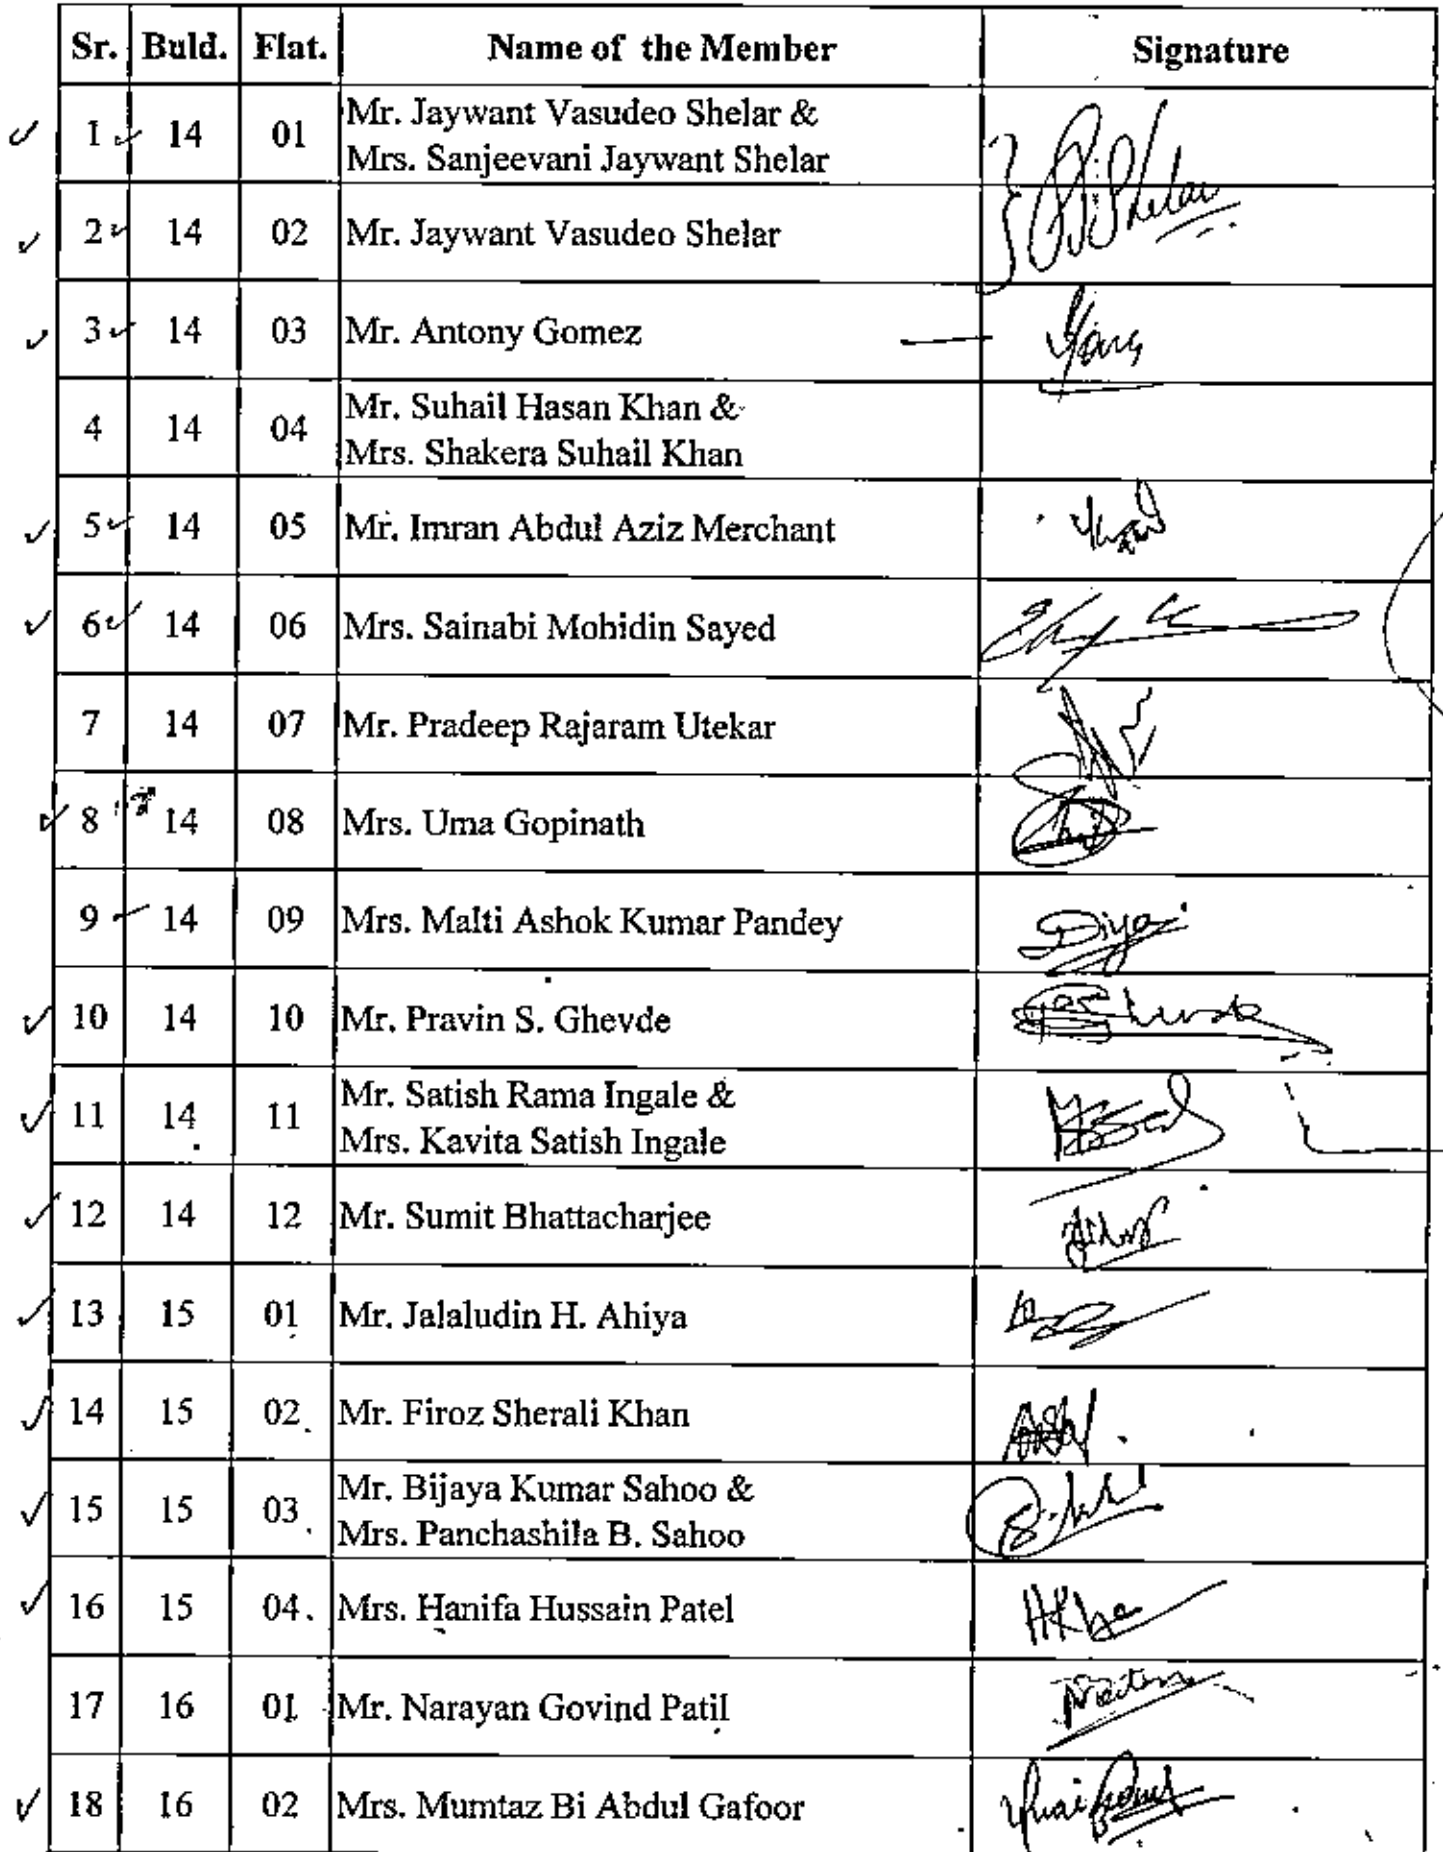 Sr. Buld. Flat. Name of the Member Signature
1 14 01 Mr. Jaywant Vasudeo Shelar &
Mrs. Sanjeevani Jaywant Shelar
Shelar
2 14 02 Mr. Jaywant Vasudeo Shelar
3 14 03 Mr. Antony Gomez
4 14 04 Mr. Suhail Hasan Khan &
Mrs. Shakera Suhail Khan
5 14 05 Mr. Imran Abdul Aziz Merchant
6 14 06 Mrs. Sainabi Mohidin Sayed
7 14 07 Mr. Pradeep Rajaram Utekar
8 14 08 Mrs. Uma Gopinath
9 14 09 Mrs. Malti Ashok Kumar Pandey Diya
10 14 10 Mr. Pravin S. Ghevde
11 14 11 Mr. Satish Rama Ingale &
Mrs. Kavita Satish Ingale
12 14 12 Mr. Sumit Bhattacharjee
13 15 01 Mr. Jalaludin H. Ahiya
14 15 02 Mr. Firoz Sherali Khan
15 15 03 Mr. Bijaya Kumar Sahoo &
Mrs. Panchashila B. Sahoo
16 15 04 Mrs. Hanifa Hussain Patel
17 16 01 Mr. Narayan Govind Patil
18 16 02 Mrs. Mumtaz Bi Abdul Gafoor